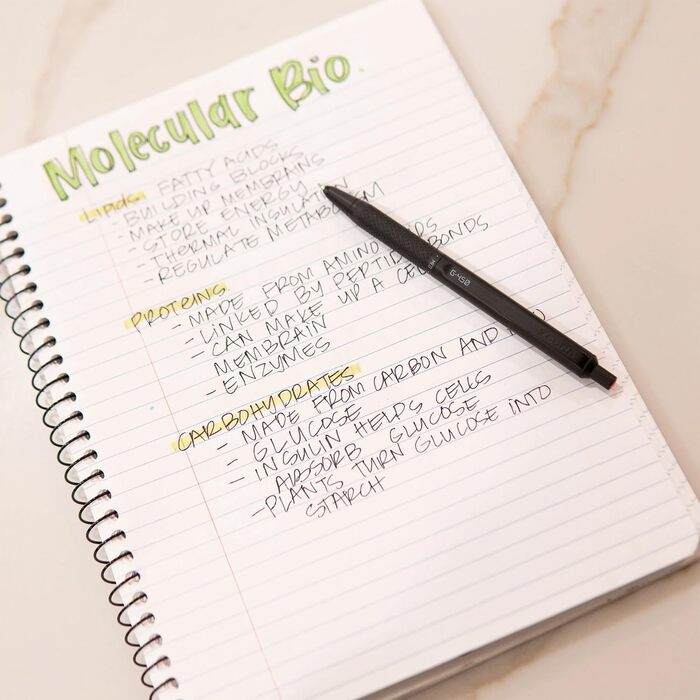 Molecular Bio.
LIPIDS FATTY ACIDS
- BUILDING BLOCKS
- MAKE UP MEMBRAINS
- STORE ENERGY
- THERMAL INSULATION
- REGULATE METABOLISM
PROTEINS
- MADE FROM AMINO
- LINKED BY PEPTIDE BONDS
- CAN MAKE UP A CELL
MEMBRAIN
- ENZYMES
CARBOHYDRATES
- MADE FROM CARBON AND
- GLUCOSE
- INSULIN HELPS CELLS
ABSORB GLUCOSE
- PLANTS TURN GLUCOSE INTO
STARCH
G-450